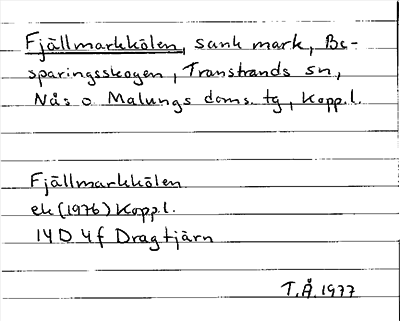 Fjällmarkkölen, sank mark, Be-
sparingsskogen, Transtrands sn,
Nås o Malungs doms. tg, Kopp.l.
Fjällmarkkölen
ek (1976) Kopp.l.
14D 4f Dragtjärn
T.Å. 1977